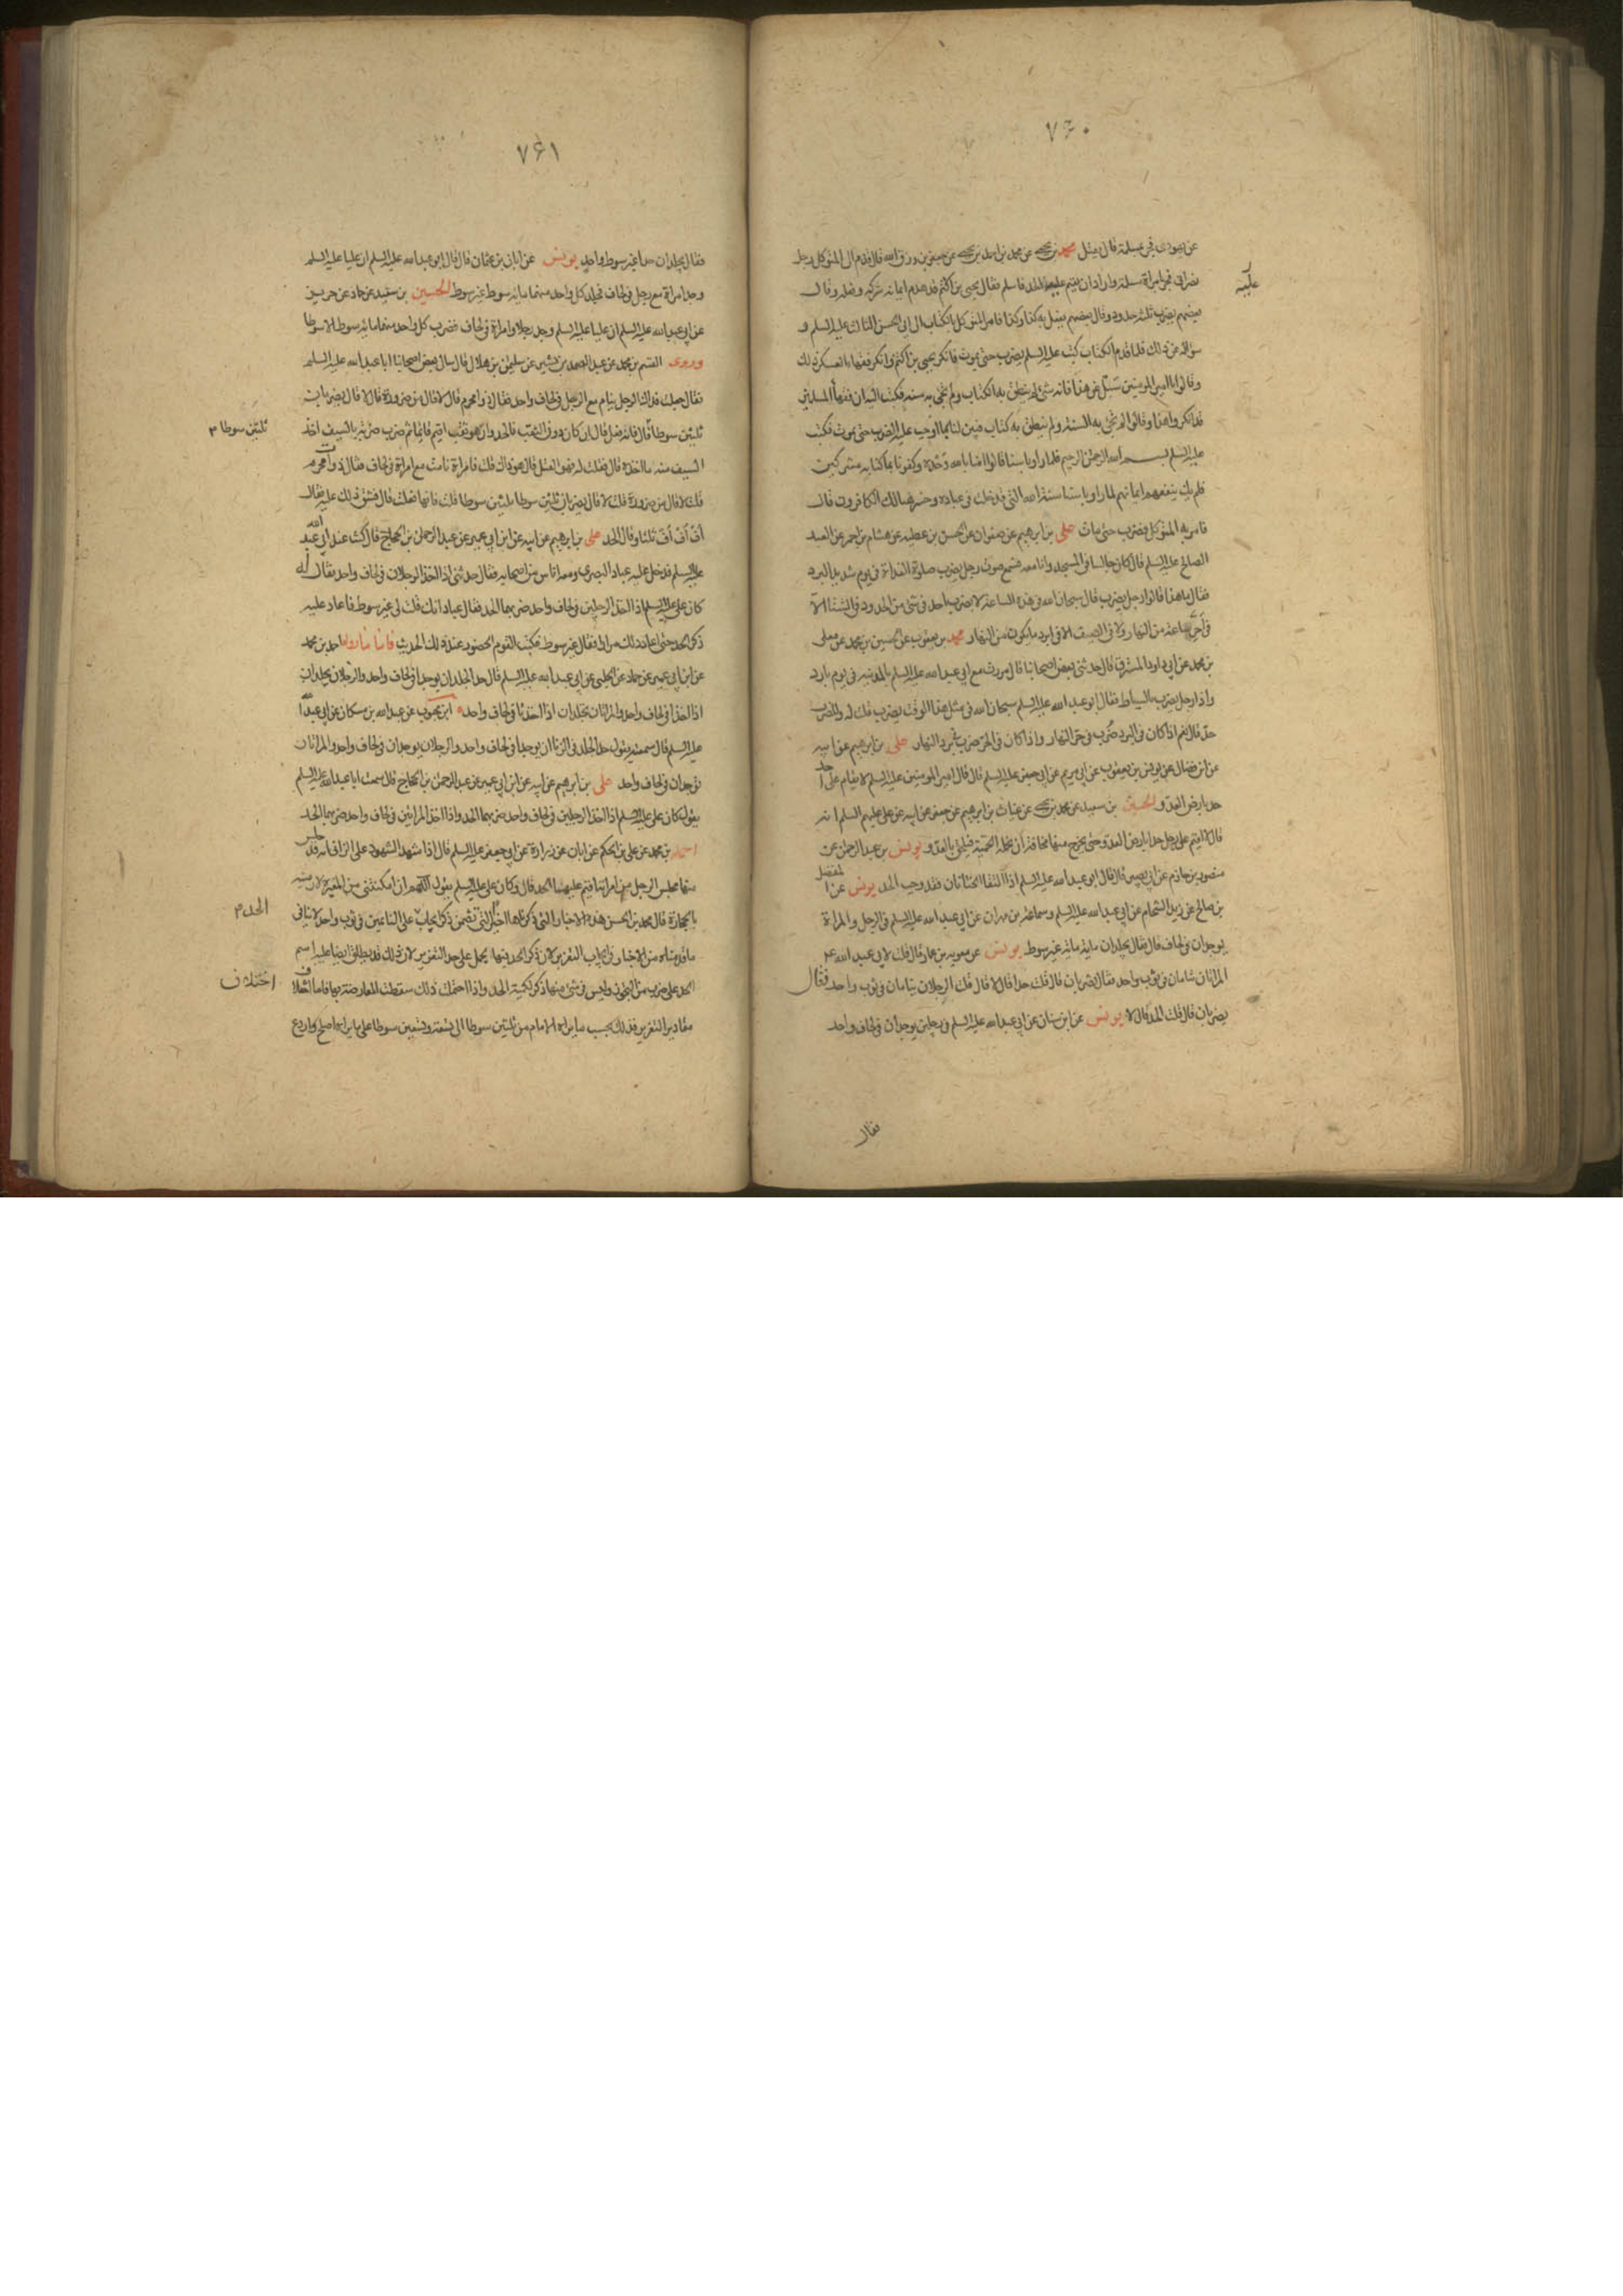 ٧۶٠
عن يهودي فجر بمسلمة قال يقتل محمد بن يحيى عن محمد بن احمد بن يحيى عن جعفر بن رزق الله قال قدم الى المتوكل رجل
نصراني فجر بامراة مسلمة واراد ان يقيم عليه الحد فاسلم فقال يحيى بن اكثم قد هدم ايمانه شركه وفعله وقال
عليه
بعضهم يضرب ثلثة حدود وقال بعضهم يفعل به كذا وكذا فامر المتوكل بالكتاب الى ابي الحسن الثالث عليه السلم و
سؤاله عن ذلك فلما قدم الكتاب كتب عليه السلم يضرب حتى يموت فانكر يحيى بن اكثم وانكر فقهاء العسكر ذلك
وقالوا يا امير المومنين تسئل عن هذا فانه شئ لم ينطق به الكتاب ولم تجئ به سنة فكتب اليه ان فقهاء المسلمين
قد انكروا هذا وقالوا لم تجئ به السنة ولم ينطق به كتاب فبين لنا بما اوجبت عليه الضرب حتى يموت فكتب
عليه السلم بسم الله الرحمن الرحيم فلما راوا باسنا قالوا امنا بالله وحده وكفرنا بما كنا به مشركين
فلم يك ينفعهم ايمانهم لما راوا باسنا سنة الله التي قد خلت في عباده وخسر هنالك الكافرون قال
فامر به المتوكل فضرب حتى مات علي بن ابرهيم عن ابيه عن صفوان عن الحسين بن عطية عن هشام بن احمر عن العبد
الصالح عليه السلم قال كان جالسا في المسجد وانا معه فسمع صوت رجل يضرب صلوة الغداة في يوم شديد البرد
فقال ما هذا قالوا رجل يضرب قال سبحان الله في هذه الساعة لا يضرب احد في شئ من الحدود في الشتا الا
في احر ساعة من النهار ولا في الصيف الا في ابرد ما يكون من النهار محمد بن يعقوب عن الحسين بن محمد عن معلى
بن محمد عن ابي داود المسترق قال حدثني بعض اصحابنا قال مررت مع ابي عبد الله عليه السلم بالمدينة في يوم بارد
واذا رجل يضرب بالسياط فقال ابو عبد الله عليه السلم سبحان الله في مثل هذا الوقت يضرب قلت له وللضرب
حد قال نعم اذا كان في البرد ضرب في حر النهار واذا كان في الحر ضرب في برد النهار علي بن ابرهيم عن ابيه
عن ابن فضال عن يونس بن يعقوب عن ابي مريم عن ابي جعفر عليه السلم قال قال امير المومنين عليه السلم لا يقام على احد
حد بارض العدو الحسين بن سعيد عن محمد بن يحيى عن غياث بن ابرهيم عن جعفر عن ابيه عن علي عليهم السلم انه
قال لا اقيم على رجل حدا بارض العدو حتى يخرج منها مخافة ان تحمله الحمية فيلحق بالعدو يونس بن عبد الرحمن عن
منصور بن حازم عن ابي بصير قال قال ابو عبد الله عليه السلم اذا التقا الختانان فقد وجب الحد يونس عن المفضل
بن صالح عن زيد الشحام عن ابي عبد الله عليه السلم وسماعة بن مهران عن ابي عبد الله عليه السلم في الرجل والمراة
يوجدان في لحاف قال فقال يجلدان ماية ماية غير سوط يونس عن معوية بن عمار قال قلت لابي عبد الله ع
المراتان تنامان في ثوب واحد فقال تضربان قال قلت حدا قال لا قال قلت الرجلان ينامان في ثوب واحد فقال
يضربان قال قلت الحد قال لا يونس عن ابن سنان عن ابي عبد الله عليه السلم في رجلين يوجدان في لحاف واحد
فقال
٧۶١
فقال يجلدان حدا غير سوط واحد يونس عن ابان بن عثمان قال قال ابو عبد الله عليه السلم ان عليا عليه السلم
وجد امراة مع رجل في لحاف فجلد كل واحد منهما ماية سوط غير سوط الحسين بن سعيد عن حماد عن حريز
عن ابي عبد الله عليه السلم ان عليا عليه السلم وجد رجلا وامراة في لحاف فضرب كل واحد منهما ماية سوط الا سوطا
وروى القسم بن محمد عن عبد الصمد بن بشير عن سليمن بن هلال قال سال بعض اصحابنا ابا عبد الله عليه السلم
فقال جعلت فداك الرجل ينام مع الرجل في لحاف واحد فقال ذوا محرم قال لا قال من ضرورة قال لا قال يضربان
ثلثين سوطا ثلثين سوطا م
قال فانه فعل قال ان كان دون الثقب فالحد وان هو ثقب اقيم قائما ثم ضرب ضربة بالسيف اخذ
السيف منه ما اخذه قال فقلت له فهو القتل قال هو ذاك قلت فامراة نامت مع امراة في لحاف فقال ذواتا محرم
قلت لا قال من ضرورة قلت لا قال تضربان ثلثين سوطا ثلثين سوطا قلت فانها فعلت قال فشق ذلك عليه فقال
اف اف اف ثلثا وقال الحد علي بن ابرهيم عن ابيه عن ابن ابي عمير عن عبد الرحمن بن الحجاج قال كنت عند ابي عبد الله
عليه السلم فدخل عليه عباد البصري ومعه اناس من اصحابه فقال حدثني اذا اخذ الرجلان في لحاف واحد فقال له
كان علي عليه السلم اذا اخذ الرجلين في لحاف واحد ضربهما الحد فقال عباد انك قلت لي غير سوط فاعاد عليه
ذكر الحد حتى اعاد ذلك مرارا فقال غير سوط فكتب القوم الحضور عند ذلك الحديث فاما ما رواه احمد بن محمد
عن ابن ابي عمير عن حماد عن الحلبي عن ابي عبد الله عليه السلم قال حد الجلد ان يوجدا في لحاف واحد والرجلان يجلدان
اذا اخذا في لحاف واحد والمراتان تجلدان اذا اخذتا في لحاف واحد ابن محبوب عن عبد الله بن مسكان عن ابي عبد الله
عليه السلم قال سمعته يقول حد الجلد في الزنا ان يوجدا في لحاف واحد والرجلان يوجدان في لحاف واحد والمراتان
توجدان في لحاف واحد علي بن ابرهيم عن ابيه عن ابن ابي عمير عن عبد الرحمن بن الحجاج قال سمعت ابا عبد الله عليه السلم
يقول كان علي عليه السلم اذا اخذ الرجلين في لحاف واحد ضربهما الحد واذا اخذ المراتين في لحاف واحد ضربهما الحد
احمد بن محمد عن علي بن الحكم عن ابان عن زرارة عن ابي جعفر عليه السلم قال اذا شهد الشهود على الزاني انه قد جلس
منها مجلس الرجل من امراته اقيم عليهما الحد قال وكان علي عليه السلم يقول اللهم ان امكنتني من المغيرة لارمينه
بالحجارة قال محمد بن الحسن هذه الاخبار التي ذكرناها اخيرا التي تضمن ذكر ايجاب الحد م على النائمين في ثوب واحد لا تنافي
ما قدمناه من الاخبار في ايجاب التعزير لان ذكر الحد فيها يحمل على حد التعزير لان ذلك قد يطلق ايضا عليه اسم
الحد على ضرب من التجوز وليس في شئ منها ذكر لكمية الحد واذا احتمل ذلك سقطت المعارضة بها فاما اختلاف
اختلاف
مقادير التعزير فذلك بحسب ما يراه الامام من ثلثين سوطا الى تسعة وتسعين سوطا على ما يراه اصلح واردع